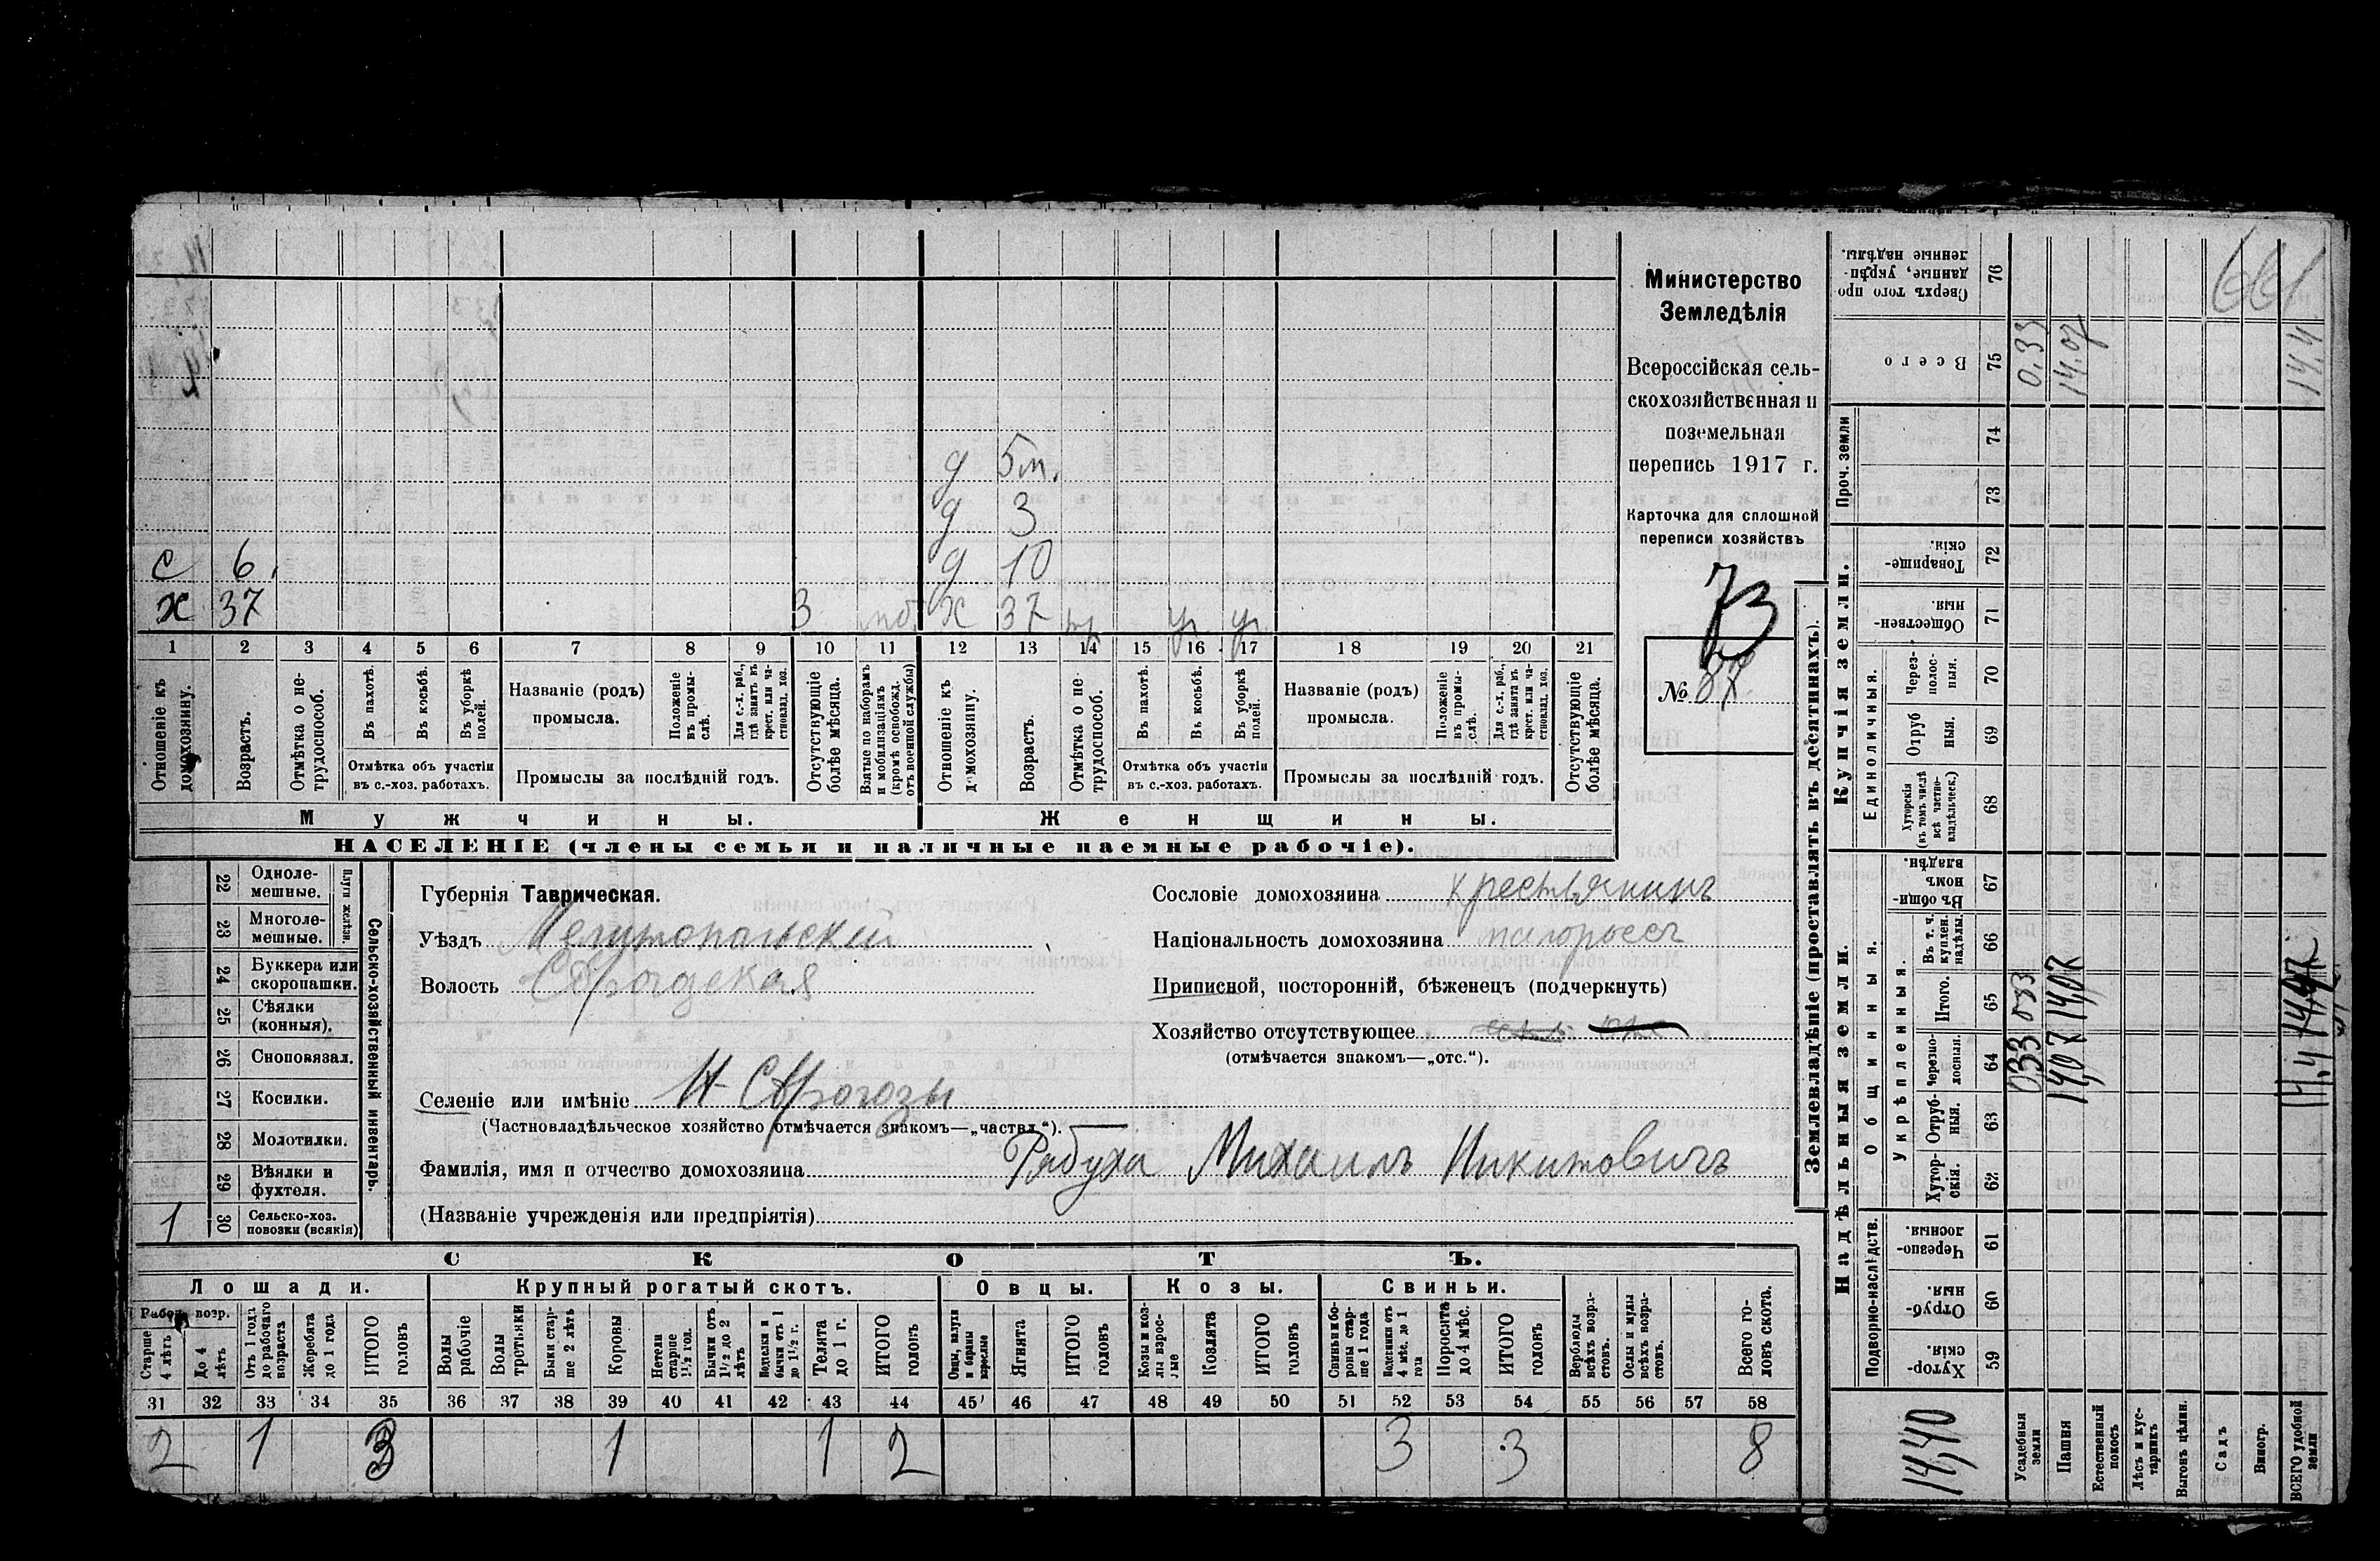 661
Министерство
Земледѣлія
Всероссійская сель-
скохозяйственная и
поземельная
перепись 1917 г.
Карточка для сплошной
переписи хозяйствъ
73
№ 87
д 5 м.
д 3
с 6. д 10
х 37 3 мб. х 37 ур. ур.
1 2 3 4 5 6 7 8 9 10 11 12 13 14 15 16 17 18 19 20 21
Отношеніе къ домохозяину.
Возрастъ.
Отмѣтка о не-трудоспособ.
Въ пахотѣ.
Въ косьбѣ.
Въ уборкѣ полей.
Отмѣтка объ участіи
въ с.-хоз. работахъ.
Названіе (родъ)
промысла.
Положеніе въ промы-слѣ.
Для с.-х. раб., гдѣ занятъ въ крест. или ча-стновлад. хоз.
Промыслы за послѣдній годъ.
Отсутствующіе болѣе мѣсяца.
Взятые по наборамъ и мобилизаціямъ (кромѣ освобожд. отъ военной службы)
Отношеніе къ домохозяину.
Возрастъ.
Отмѣтка о не-трудоспособ.
Въ пахотѣ.
Въ косьбѣ.
Въ уборкѣ полей.
Отмѣтка объ участіи
въ с.-хоз. работахъ.
Названіе (родъ)
промысла.
Положеніе въ промы-слѣ.
Для с.-х. раб., гдѣ занята въ крест. или ча-стновлад. хоз.
Промыслы за послѣдній годъ.
Отсутствующіе болѣе мѣсяца.
Мужчины. Женщины.
НАСЕЛЕНІЕ (члены семьи и наличные наемные рабочіе).
22 Одноле-мешные.
23 Многоле-мешные.
Плуги желѣзн.
24 Буккера или скоропашки.
25 Сѣялки (конныя).
26 Сноповязал.
27 Косилки.
28 Молотилки.
29 Вѣялки и фухтеля.
1 30 Сельско-хоз. повозки (всякія)
Сельско-хозяйственный инвентарь.
Губернія Таврическая.
Уѣздъ Мелитопольскій
Волость
Селеніе или имѣніе
(Частновладѣльческое хозяйство отмѣчается знакомъ—„частвл.“).
Фамилія, имя и отчество домохозяина Рябуха Михаилъ Никитовичъ
(Названіе учрежденія или предпріятія)
Сословіе домохозяина крестьянинъ
Національность домохозяина малороссъ
Приписной, посторонній, бѣженецъ (подчеркнуть)
Хозяйство отсутствующее
(отмѣчается знакомъ—„отс.“).
СКОТЪ.
Лошади. Крупный рогатый скотъ. Овцы. Козы. Свиньи.
Рабоч. возр.
Старше 4 лѣтъ
До 4 лѣтъ
Отъ 1 года до рабочаго возраста
Жеребята до 1 года
ИТОГО головъ
Волы рабочіе
Волы третьяки
Быки стар-ше 2 лѣтъ
Коровы
Нетели старше 1½ год.
Бычки отъ 1½ до 2 лѣтъ
Подтелки и бычки отъ 1 до 1½ г.
Телята до 1 г.
ИТОГО головъ
Овцы, валухи и бараны взрослые
Ягнята
ИТОГО головъ
Козы и коз-лы взрос-лые
Козлята
ИТОГО головъ
Свиньи и бо-ровы стар-ше 1 года
Подсвинки отъ 4 мѣс. до 1 года
Поросята до 4 мѣс.
ИТОГО головъ
Верблюды всѣхъ возра-стовъ.
Ослы и мулы всѣхъ возра-стовъ.
Всего го-ловъ скота.
31 32 33 34 35 36 37 38 39 40 41 42 43 44 45 46 47 48 49 50 51 52 53 54 55 56 57 58
2 1 3 1 1 2 3 3 8
Землевладѣніе (проставлять въ десятинахъ).
Купчія земли.
Надѣльныя земли.
Сверхъ того про-данные, укрѣп-ленные надѣлы. 76
Всего 75 0,33 14.07 14.4
Проч. земли
74
73
Товарище-скія. 72
Обществен-ныя. 71
Единоличныя.
Через-полос-ныя. 70
Отруб-ныя. 69
Хуторскія (въ томъ числѣ всѣ частно-владѣльческ.) 68
Общинныя.
Въ общин-номъ владѣн. 67
Укрѣпленныя.
Въ т. ч. куплен. надѣлы. 66
Итого. 65 033 14,07
Черезпо-лосныя. 64 033 14,07 14.4
Отруб-ныя. 63
Хутор-скія. 62
Подворно-наслѣдств.
Черезпо-лосныя. 61
Отруб-ныя. 60
Хутор-скія. 59
14,40
Усадебныя земли
Пашня
Естественный покосъ
Лѣсъ и кус-тарникъ
Выгонъ цѣлин.
Садъ
Виногр.
ВСЕГО удобной земли